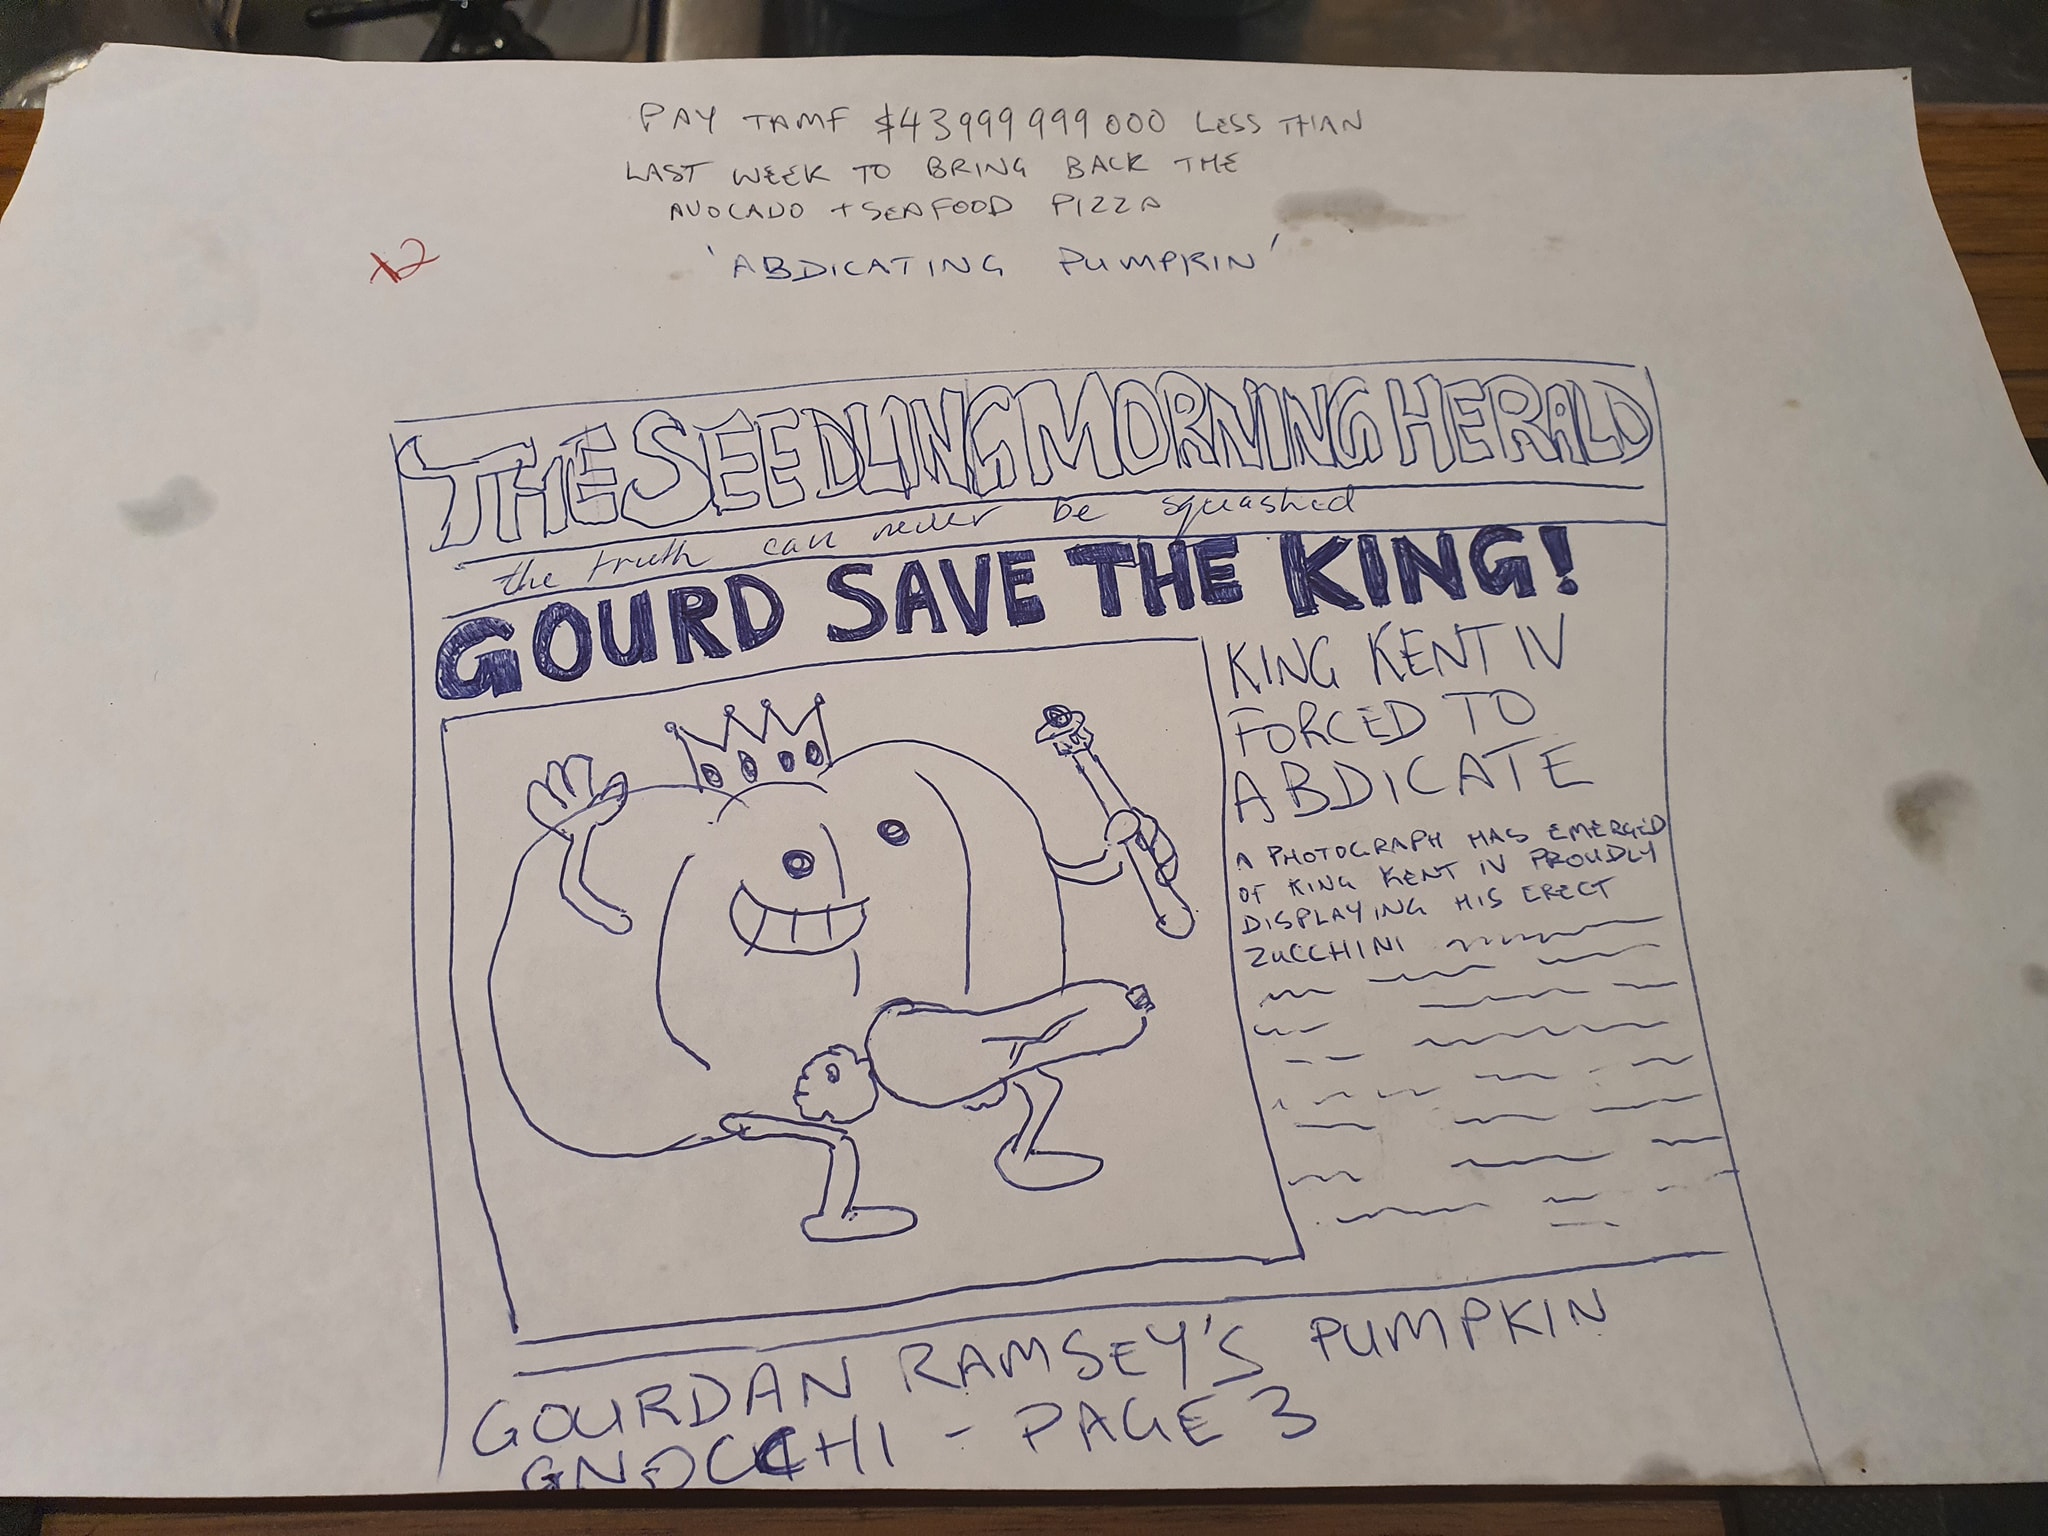 PAY TAMF $43999 999 000 LESS THAN
LAST WEEK TO BRING BACK THE
AVOCADO + SEAFOOD PIZZA
x2
'ABDICATING PUMPKIN'
THE SEEDLING MORNING HERALD
"the truth can never be squashed
GOURD SAVE THE KING!
KING KENT IV
FORCED TO
ABDICATE
A PHOTOGRAPH HAS EMERGED
OF KING KENT IV PROUDLY
DISPLAYING HIS ERECT
ZUCCHINI
GOURDAN RAMSEY'S PUMPKIN
GNOCCHI - PAGE 3